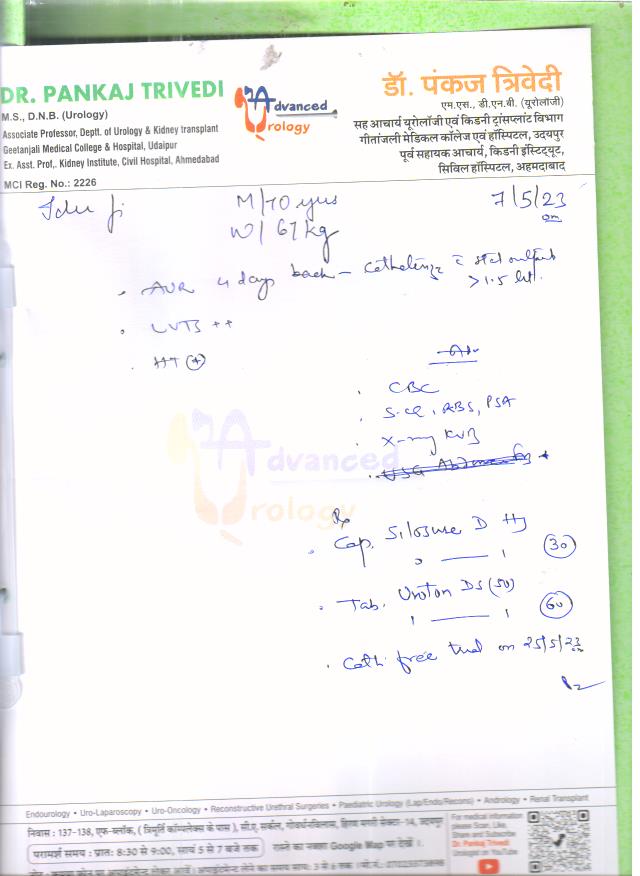 DR. PANKAJ TRIVEDI
M.S., D.N.B. (Urology)
Associate Professor, Deptt. of Urology & Kidney transplant
Geetanjali Medical College & Hospital, Udaipur
Ex. Asst. Prof,. Kidney Institute, Civil Hospital, Ahmedabad
MCI Reg. No.: 2226
Advanced
Urology
डॉ. पंकज त्रिवेदी
एम.एस., डी.एन.बी. (यूरोलॉजी)
सह आचार्य यूरोलॉजी एवं किडनी ट्रांसप्लांट विभाग
गीतांजली मेडिकल कॉलेज एवं हॉस्पिटल, उदयपुर
पूर्व सहायक आचार्य, किडनी इंस्टिट्यूट,
सिविल हॉस्पिटल, अहमदाबाद
M/70 yrs
7/5/23
W/ 67 kg
AUR 4 days back –
> 1.5 lit.
LUTS ++
HT (+)
CBC
S.Cr, RBS, PSA
X-ray KUB
Advanced
Urology
USG Abdomen
Rx
Cap. Silosure D
30
Tab. Uroton DS (50)
60
Cath. free trial on 25/5/23
Endourology • Uro-Laparoscopy • Uro-Oncology • Reconstructive Urethral Surgeries • Paediatric Urology (Lap/Endo/Recons) • Andrology • Renal Transplant
निवास : 137-138, एफ-ब्लॉक, ( त्रिमूर्ति कॉम्पलेक्स के पास ), सी.ए. सर्कल,
परामर्श समय : प्रातः 8:30 से 9:00, सायं 5 से 7 बजे तक
रास्ते का नक्शा Google Map पर देखें ।
For medical information
please Scan, Like
Share and Subscribe
Dr. Pankaj Trivedi
Urologist on YouTube